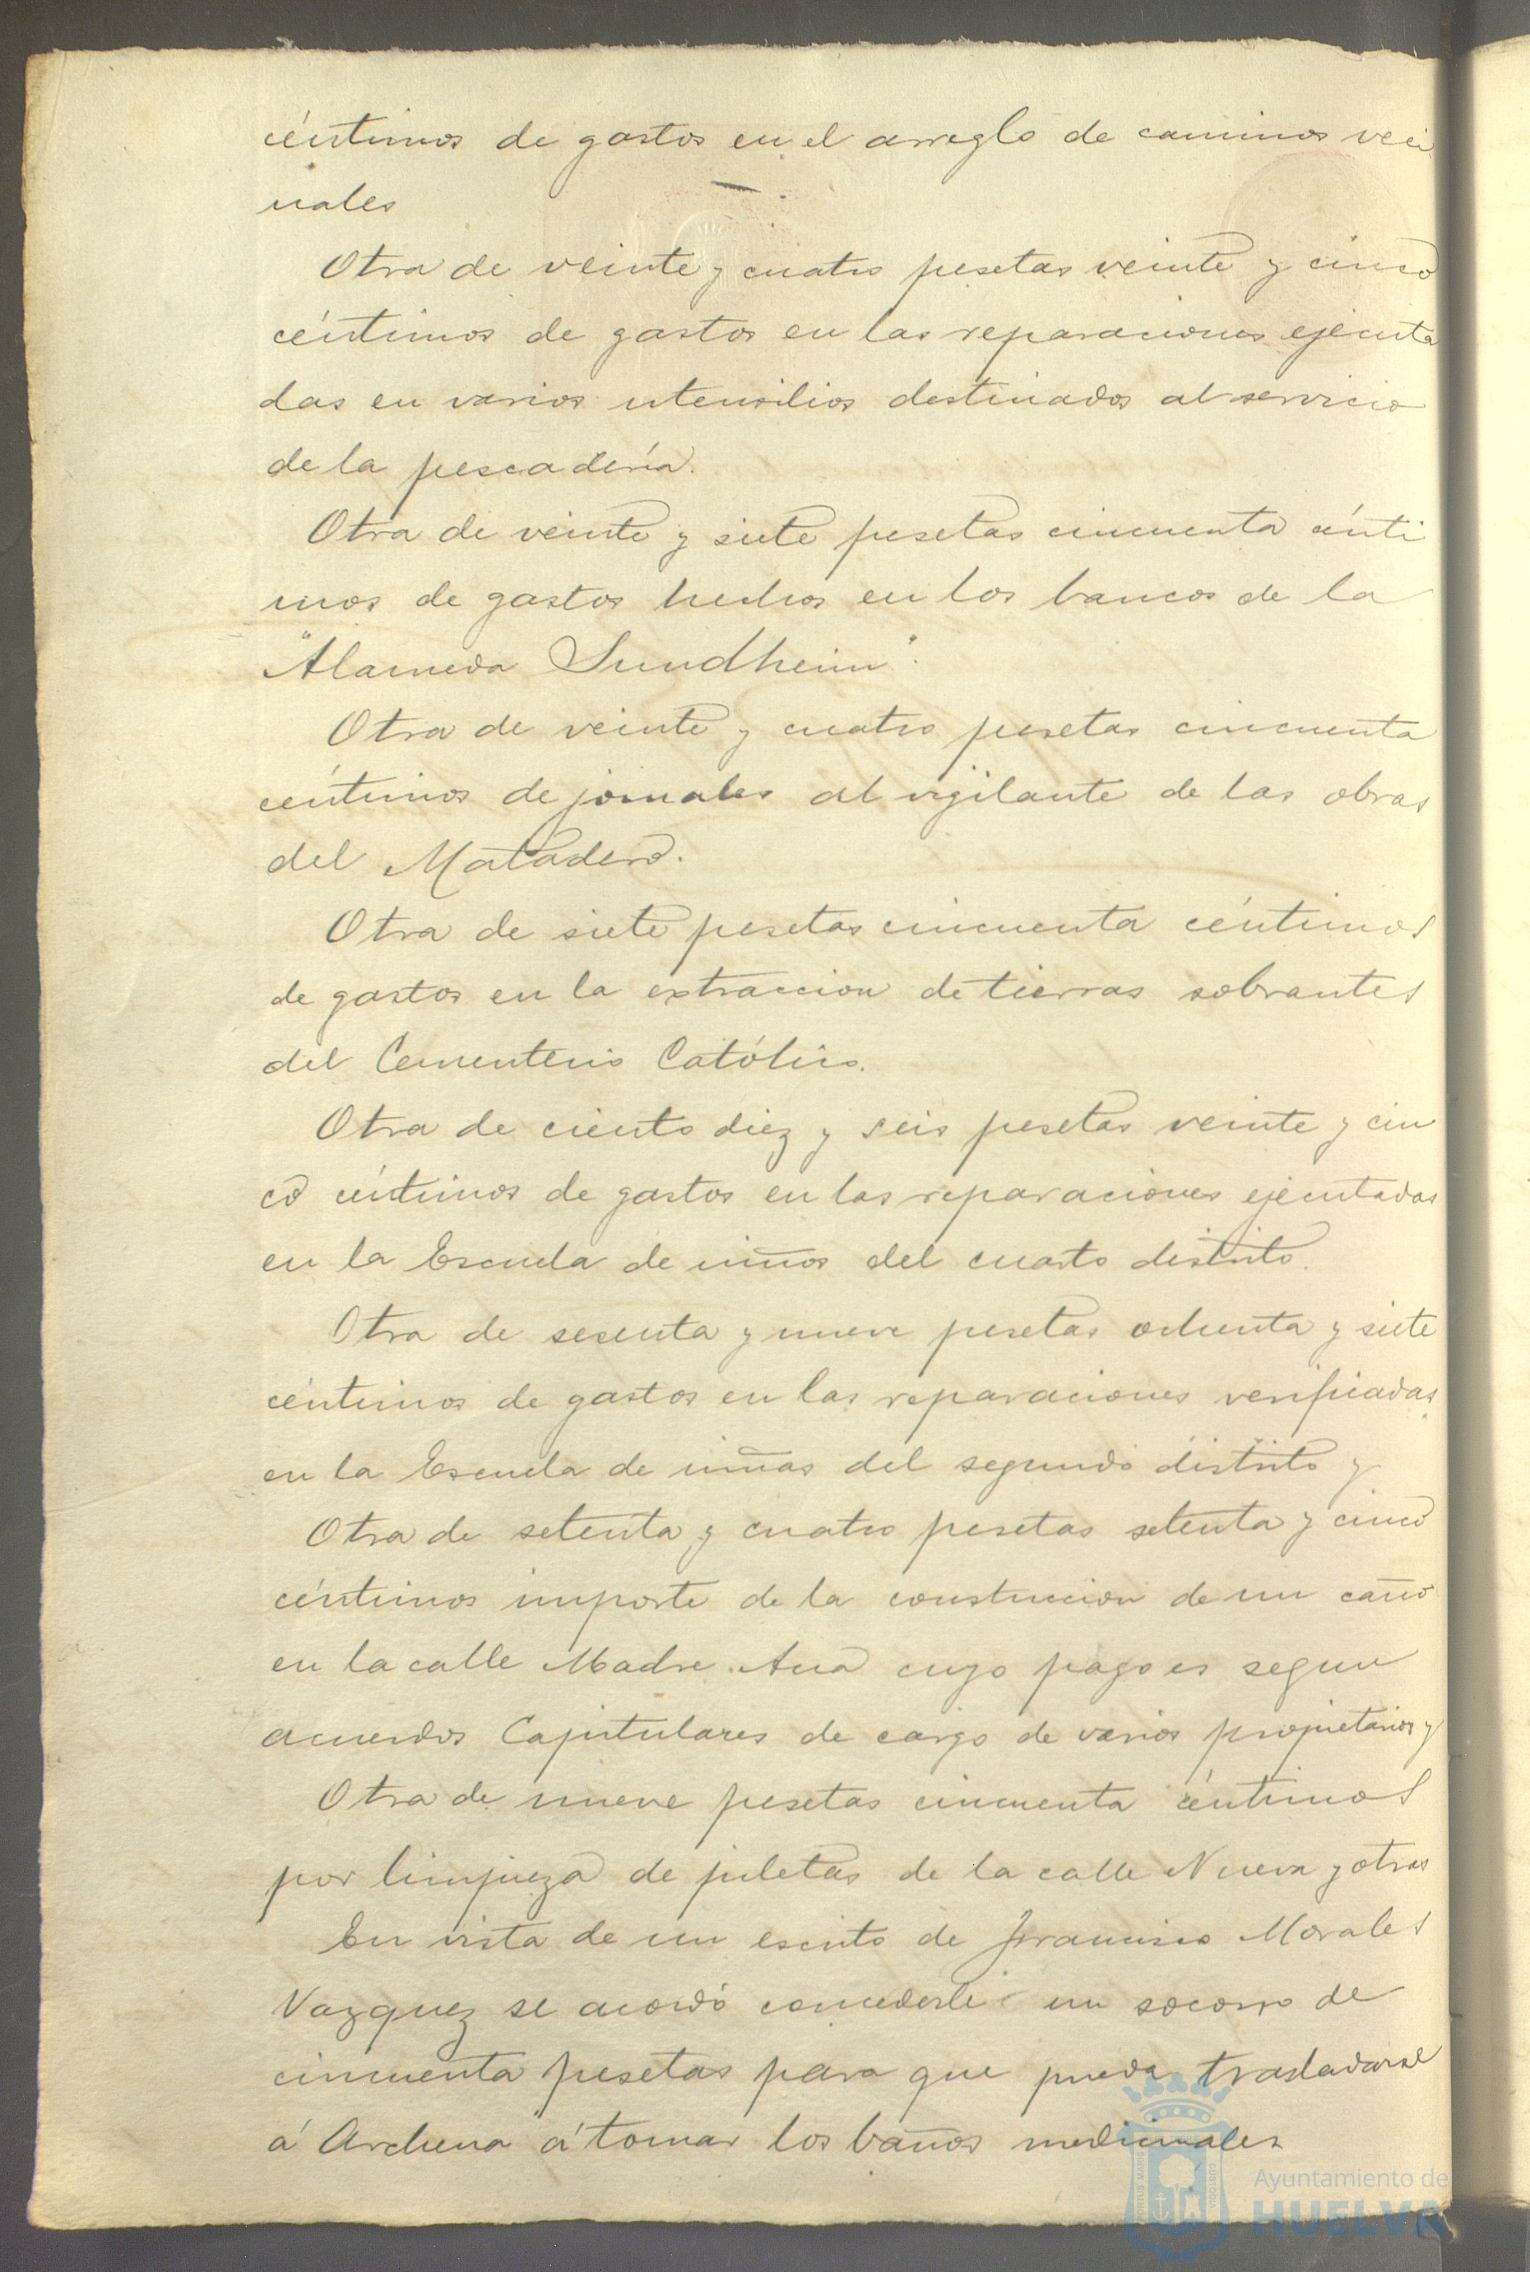 céntimos de gastos en el arreglo de caminos veci
nales
Otra de veinte y cuatro pesetas veinte y cinco
céntimos de gastos en las reparaciones ejecuta
das en varios utensilios destinados al servicio
de la pescadería.
Otra de veinte y siete pesetas cincuenta cénti
mos de gastos hechos en los bancos de la
"Alameda Sundheim".
Otra de veinte y cuatro pesetas cincuenta
céntimos de jornales al vigilante de las obras
del Matadero.
Otra de siete pesetas cincuenta céntimos
de gastos en la extraccion de tierras sobrantes
del Cementerio Católico.
Otra de ciento diez y seis pesetas veinte y cin
co céntimos de gastos en las reparaciones ejecutadas
en la Escuela de niños del cuarto distrito.
Otra de sesenta y nueve pesetas ochenta y siete
céntimos de gastos en las reparaciones verificadas
en la Escuela de niñas del segundo distrito y
Otra de setenta y cuatro pesetas setenta y cinco
céntimos importe de la construccion de un caño
en la calle Madre Ana cuyo pago es segun
acuerdos Capitulares de cargo de varios propietarios y
Otra de nueve pesetas cincuenta céntimos
por limpieza de piletas de la calle Nueva y otras
En vista de un escrito de Francisco Morales
Vazquez se acordó concederle un socorro de
cincuenta pesetas para que pueda trasladarse
á Archena á tomar los baños medicinales
Ayuntamiento de
HUELVA